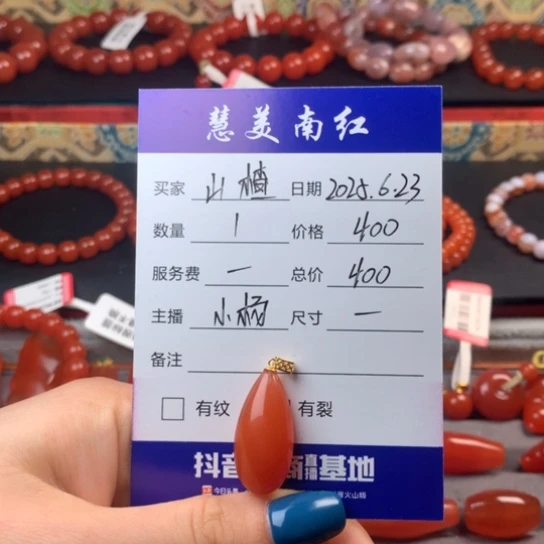 慧美南红
买家 山楂 日期 2025.6.23
数量 1 价格 400
服务费 一 总价 400
主播 小杨 尺寸 一
备注
有纹 有裂
抖音 直播基地